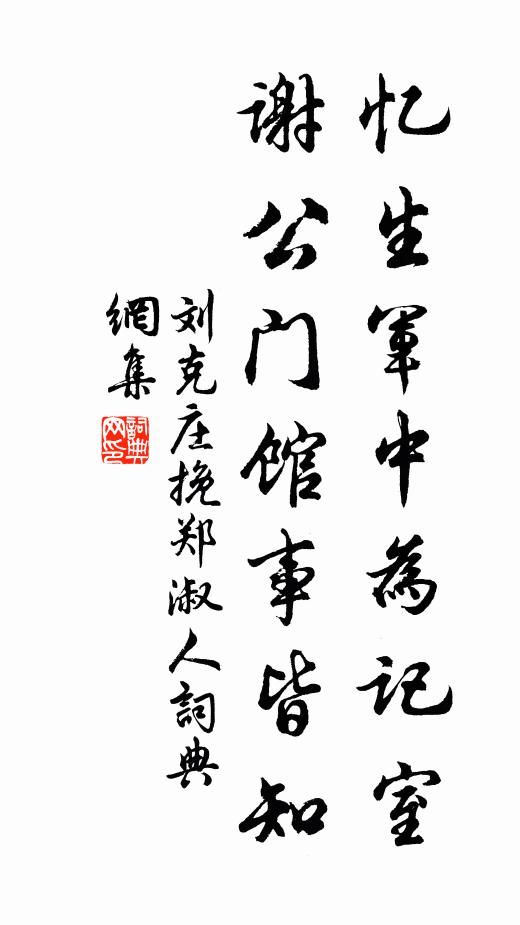 忆生军中為记室
谢公门馆事皆知
刘克庄挽郑淑人詞典
網集
詞典
网印